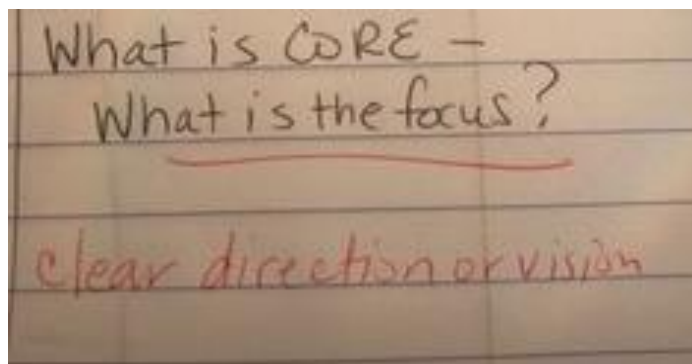 What is CORE -
What is the focus?
clear direction or vision